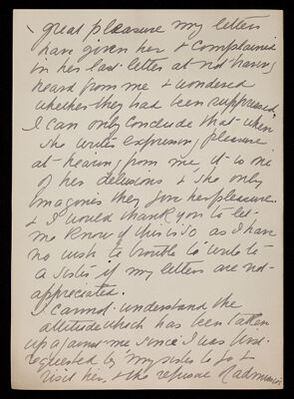 great pleasure my letters
have given her & complained
in her last letter at not having
heard from me & wondered
whether they had been suppressed.
I can only conclude that when
she writes expressing pleasure
at hearing from me it is one
of her delusions & she only
imagines they give her pleasure.
& I would thank you to let
me know if this is so as I have
no wish to trouble to write to
a sister if my letters are not
appreciated.
I cannot understand the
attitude which has been taken
up against me since I was first
requested by my sister to go &
visit her, & the refusal of admission